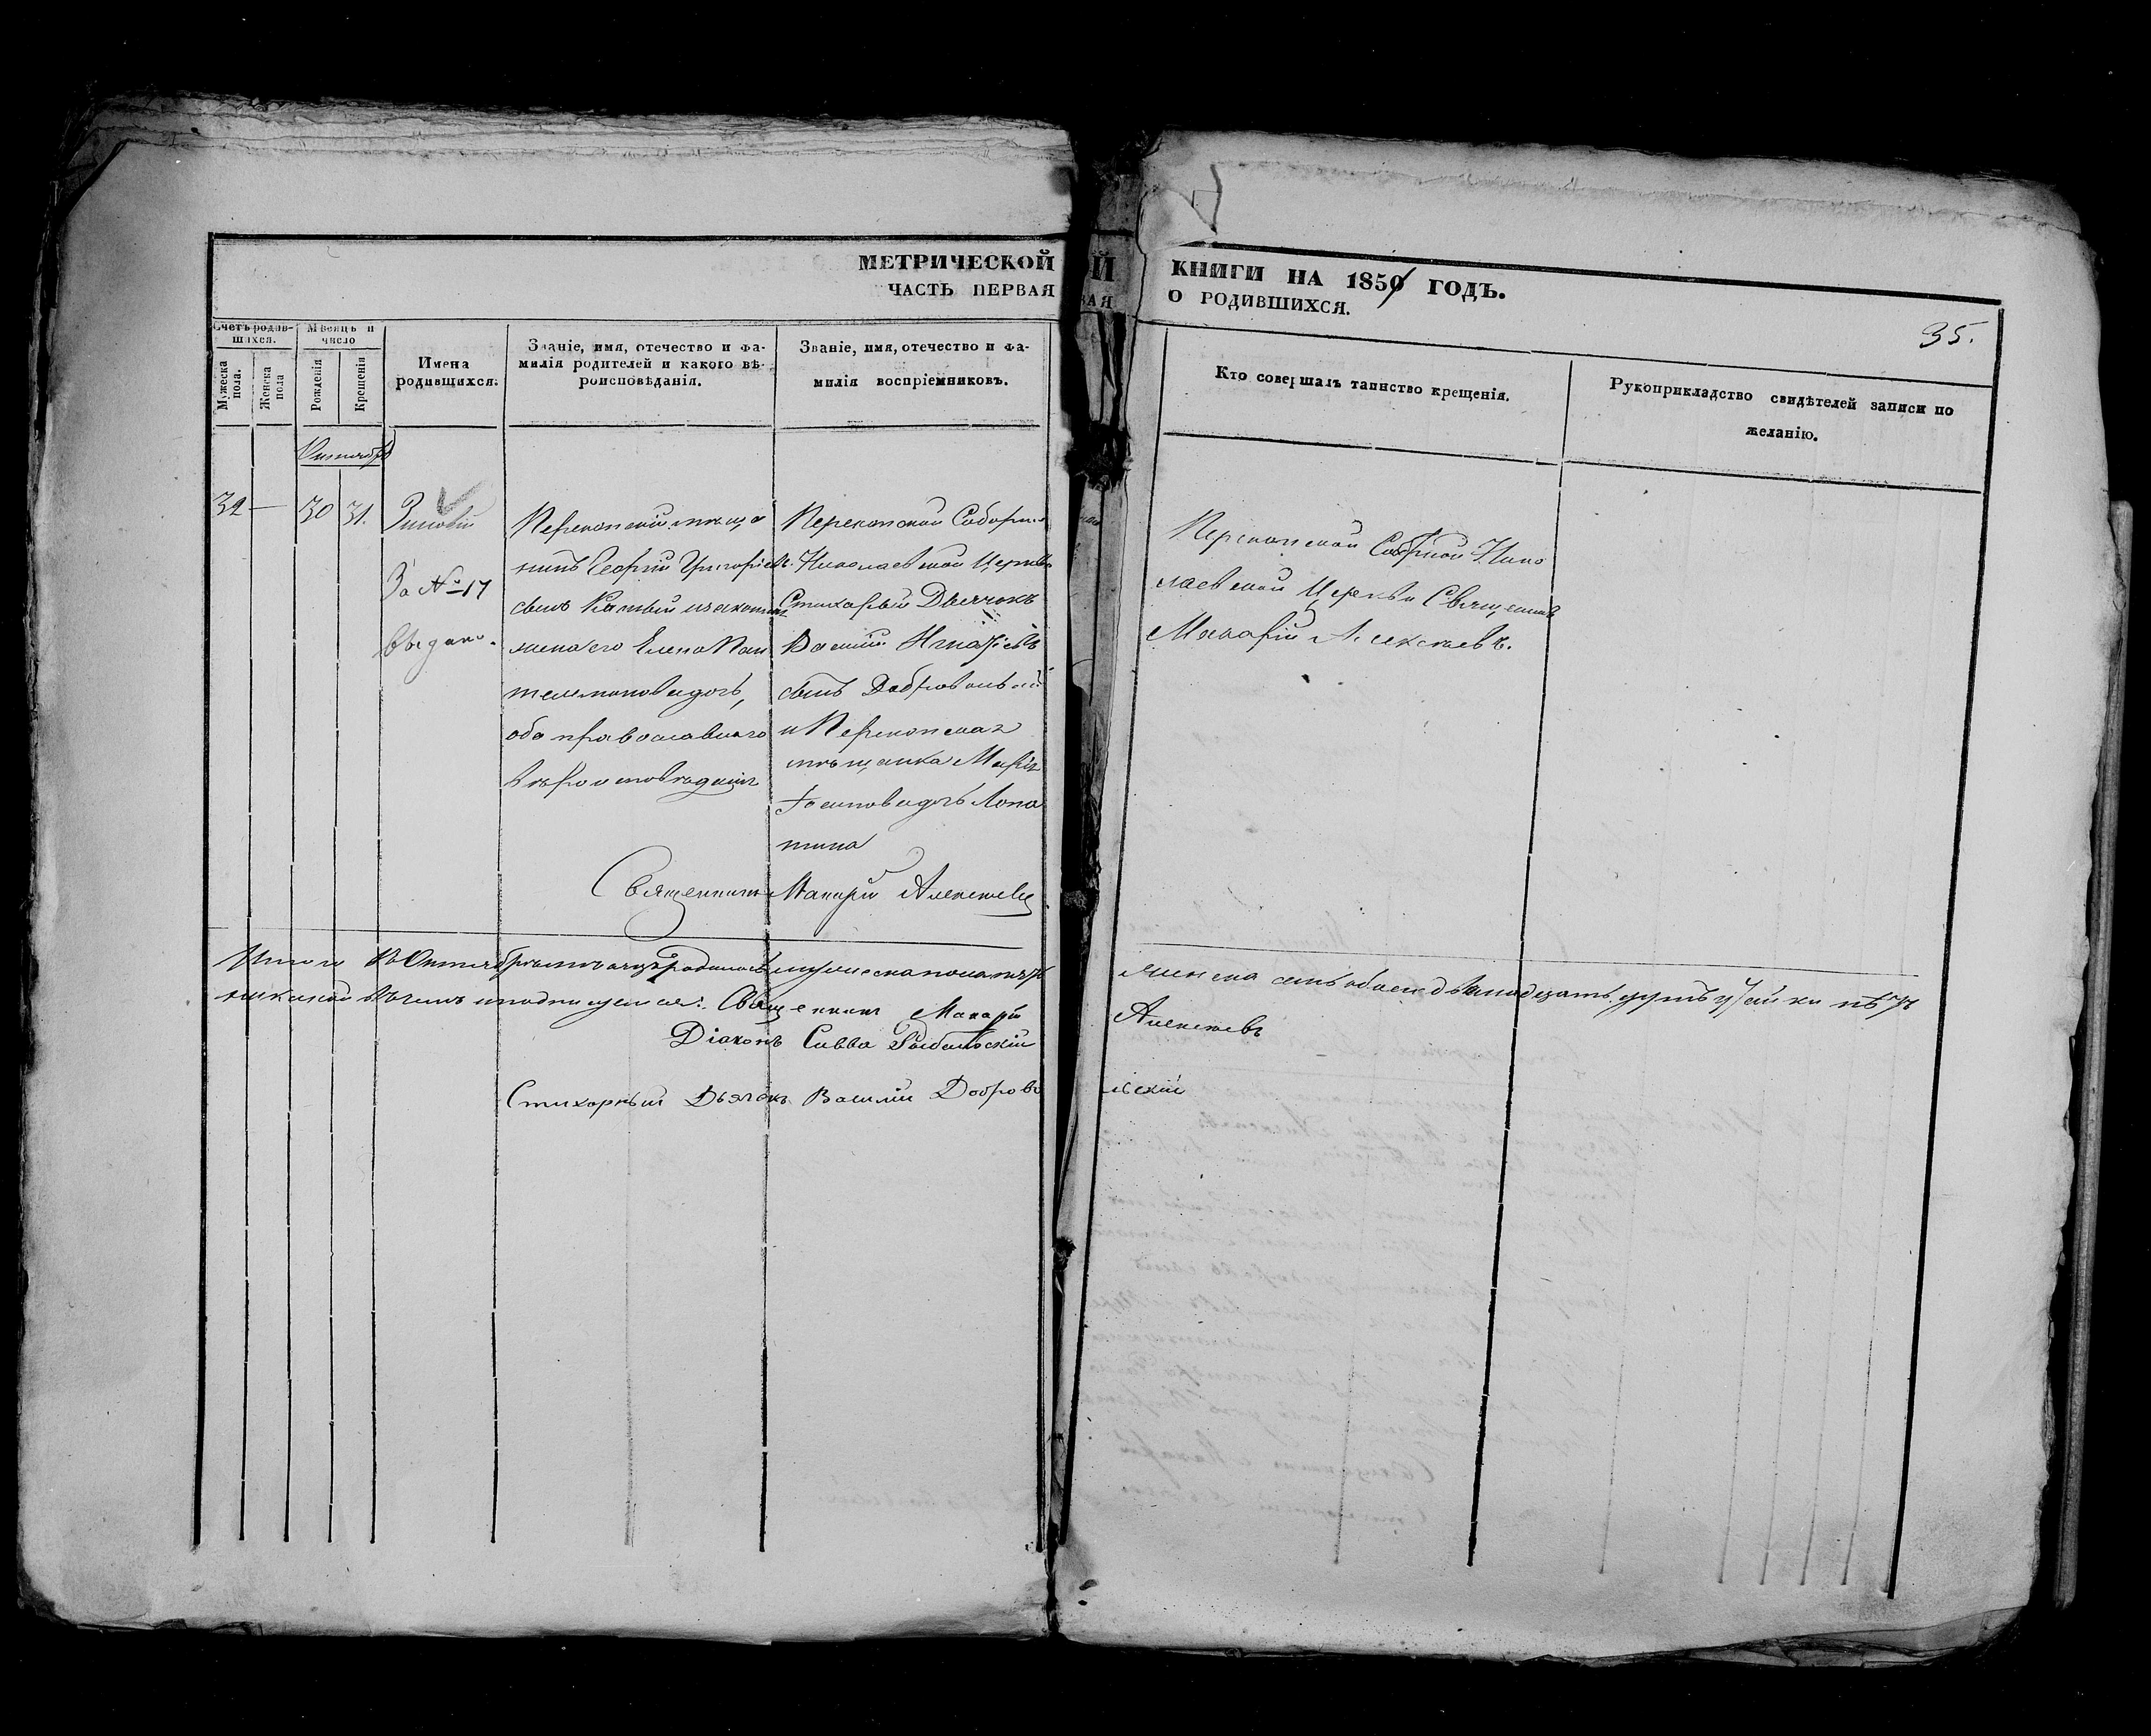 МЕТРИЧЕСКОЙ
ЧАСТЬ ПЕРВАЯ
КНИГИ НА 1850 ГОДЪ.
О РОДИВШИХСЯ.
35.
Счетъ родив-
шихся.
Мѣсяцъ и
число
Мужеска
пола.
Женска
пола
Рожденія
Крещенія
Имена
родившихся.
Званіе, имя, отечество и фа-
милія родителей и какого вѣ-
роисповѣданія.
Званіе, имя, отечество и фа-
милія воспріемниковъ.
Кто совершалъ таинство крещенія.
Рукоприкладство свидѣтелей записи по
желанію.
Октябрь
32 — 30 31.
Зиновій
За № 17
выдано.
Перекопскій мѣща
нинъ Георгій Григоріевъ
сынъ и законная
жена его Елена Пан
телимонова дочь,
оба православнаго
вѣроисповѣданія
Перекопской Соборной
Николаевской Церкви
Стихарный Дьячокъ
Василій Игнатіевъ
сынъ Добровольскій
и Перекопская
мѣщанка Марія
Іосипова дочь Лопа
тина
Перекопской Соборной Нико
лаевской Церкви Священникъ
Макарій Алексѣевъ.
Священникъ Макарій Алексѣевъ
Итого въ Октябрѣ мѣсяцѣ родилось мужеска пола
женска семь обоего двѣнадцать
въ чемъ и подписуемся: Священникъ Макарій Алексѣевъ
Діаконъ Савва
Стихарный Дьячокъ Василій Добровольскій